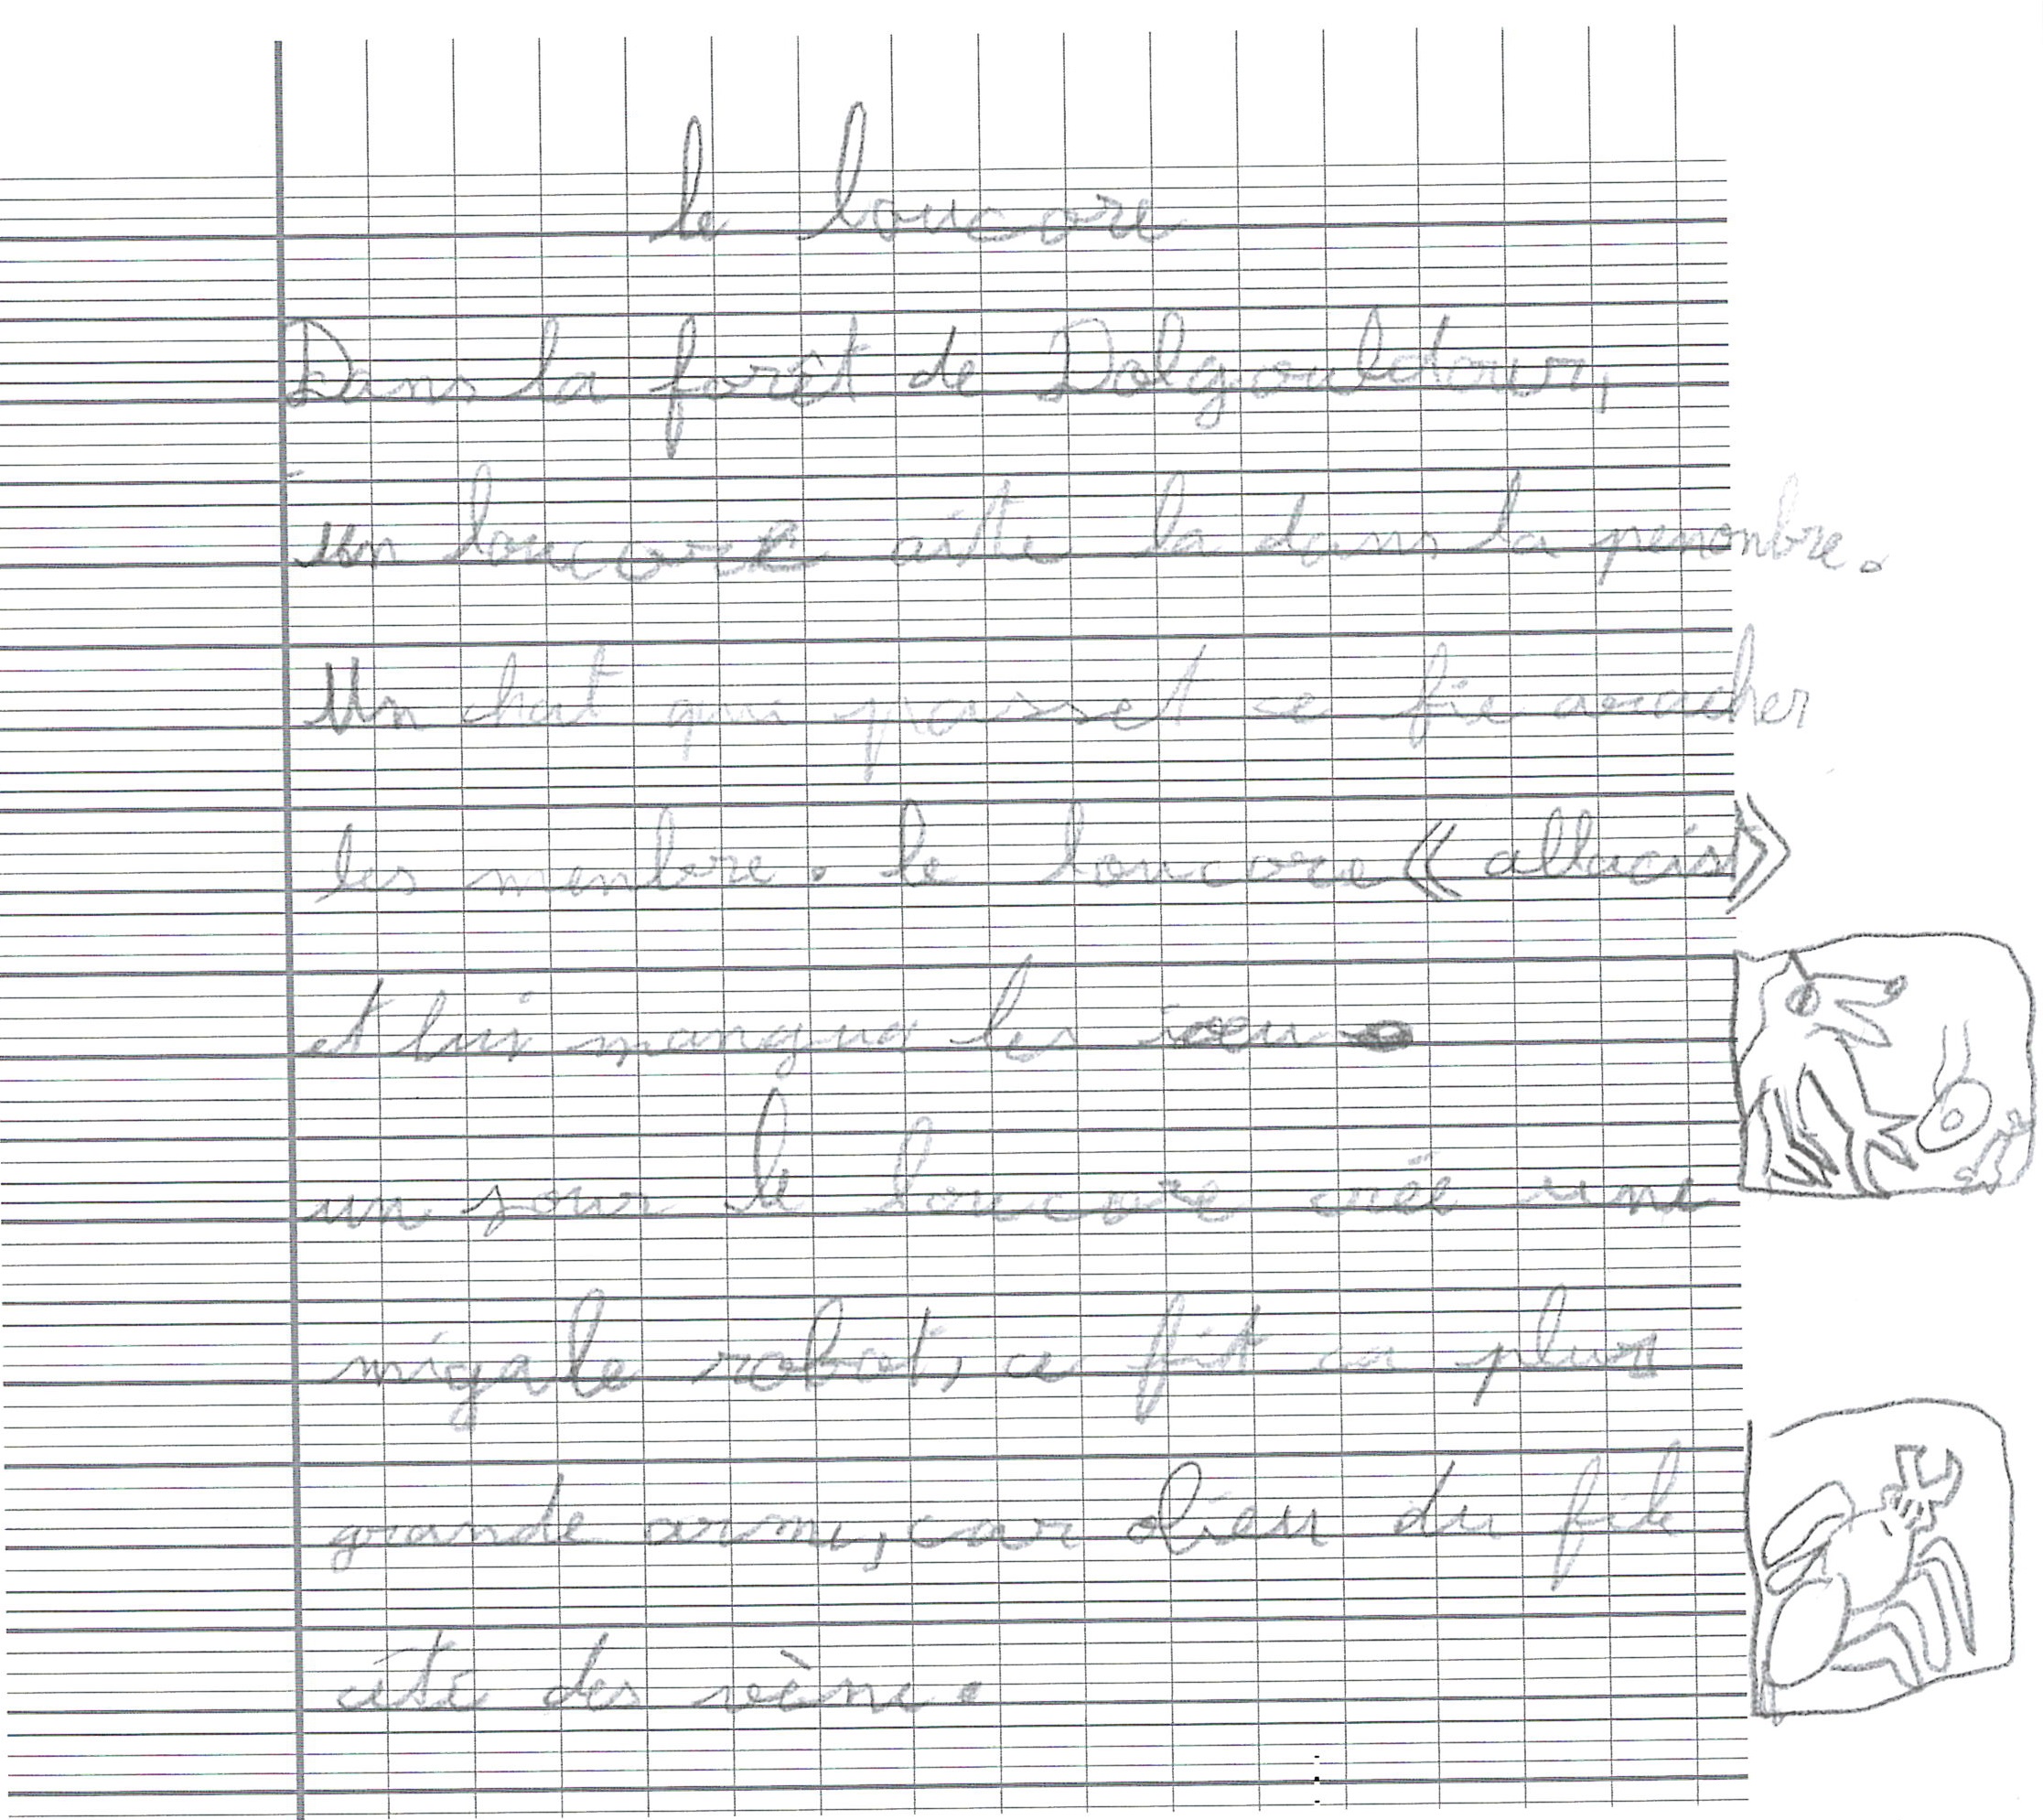 le loucore
Dans la forêt de Dolgouldour,
un loucore aitte la dans la penonbre.
Un chat qui passet ce fie aracher
les menbre. le loucore « allucis »
et lui mangua les ieu
un jour le loucore crée une
migale robot, ce fit sa plus
grande arme, car olieu du file
cété des vène.